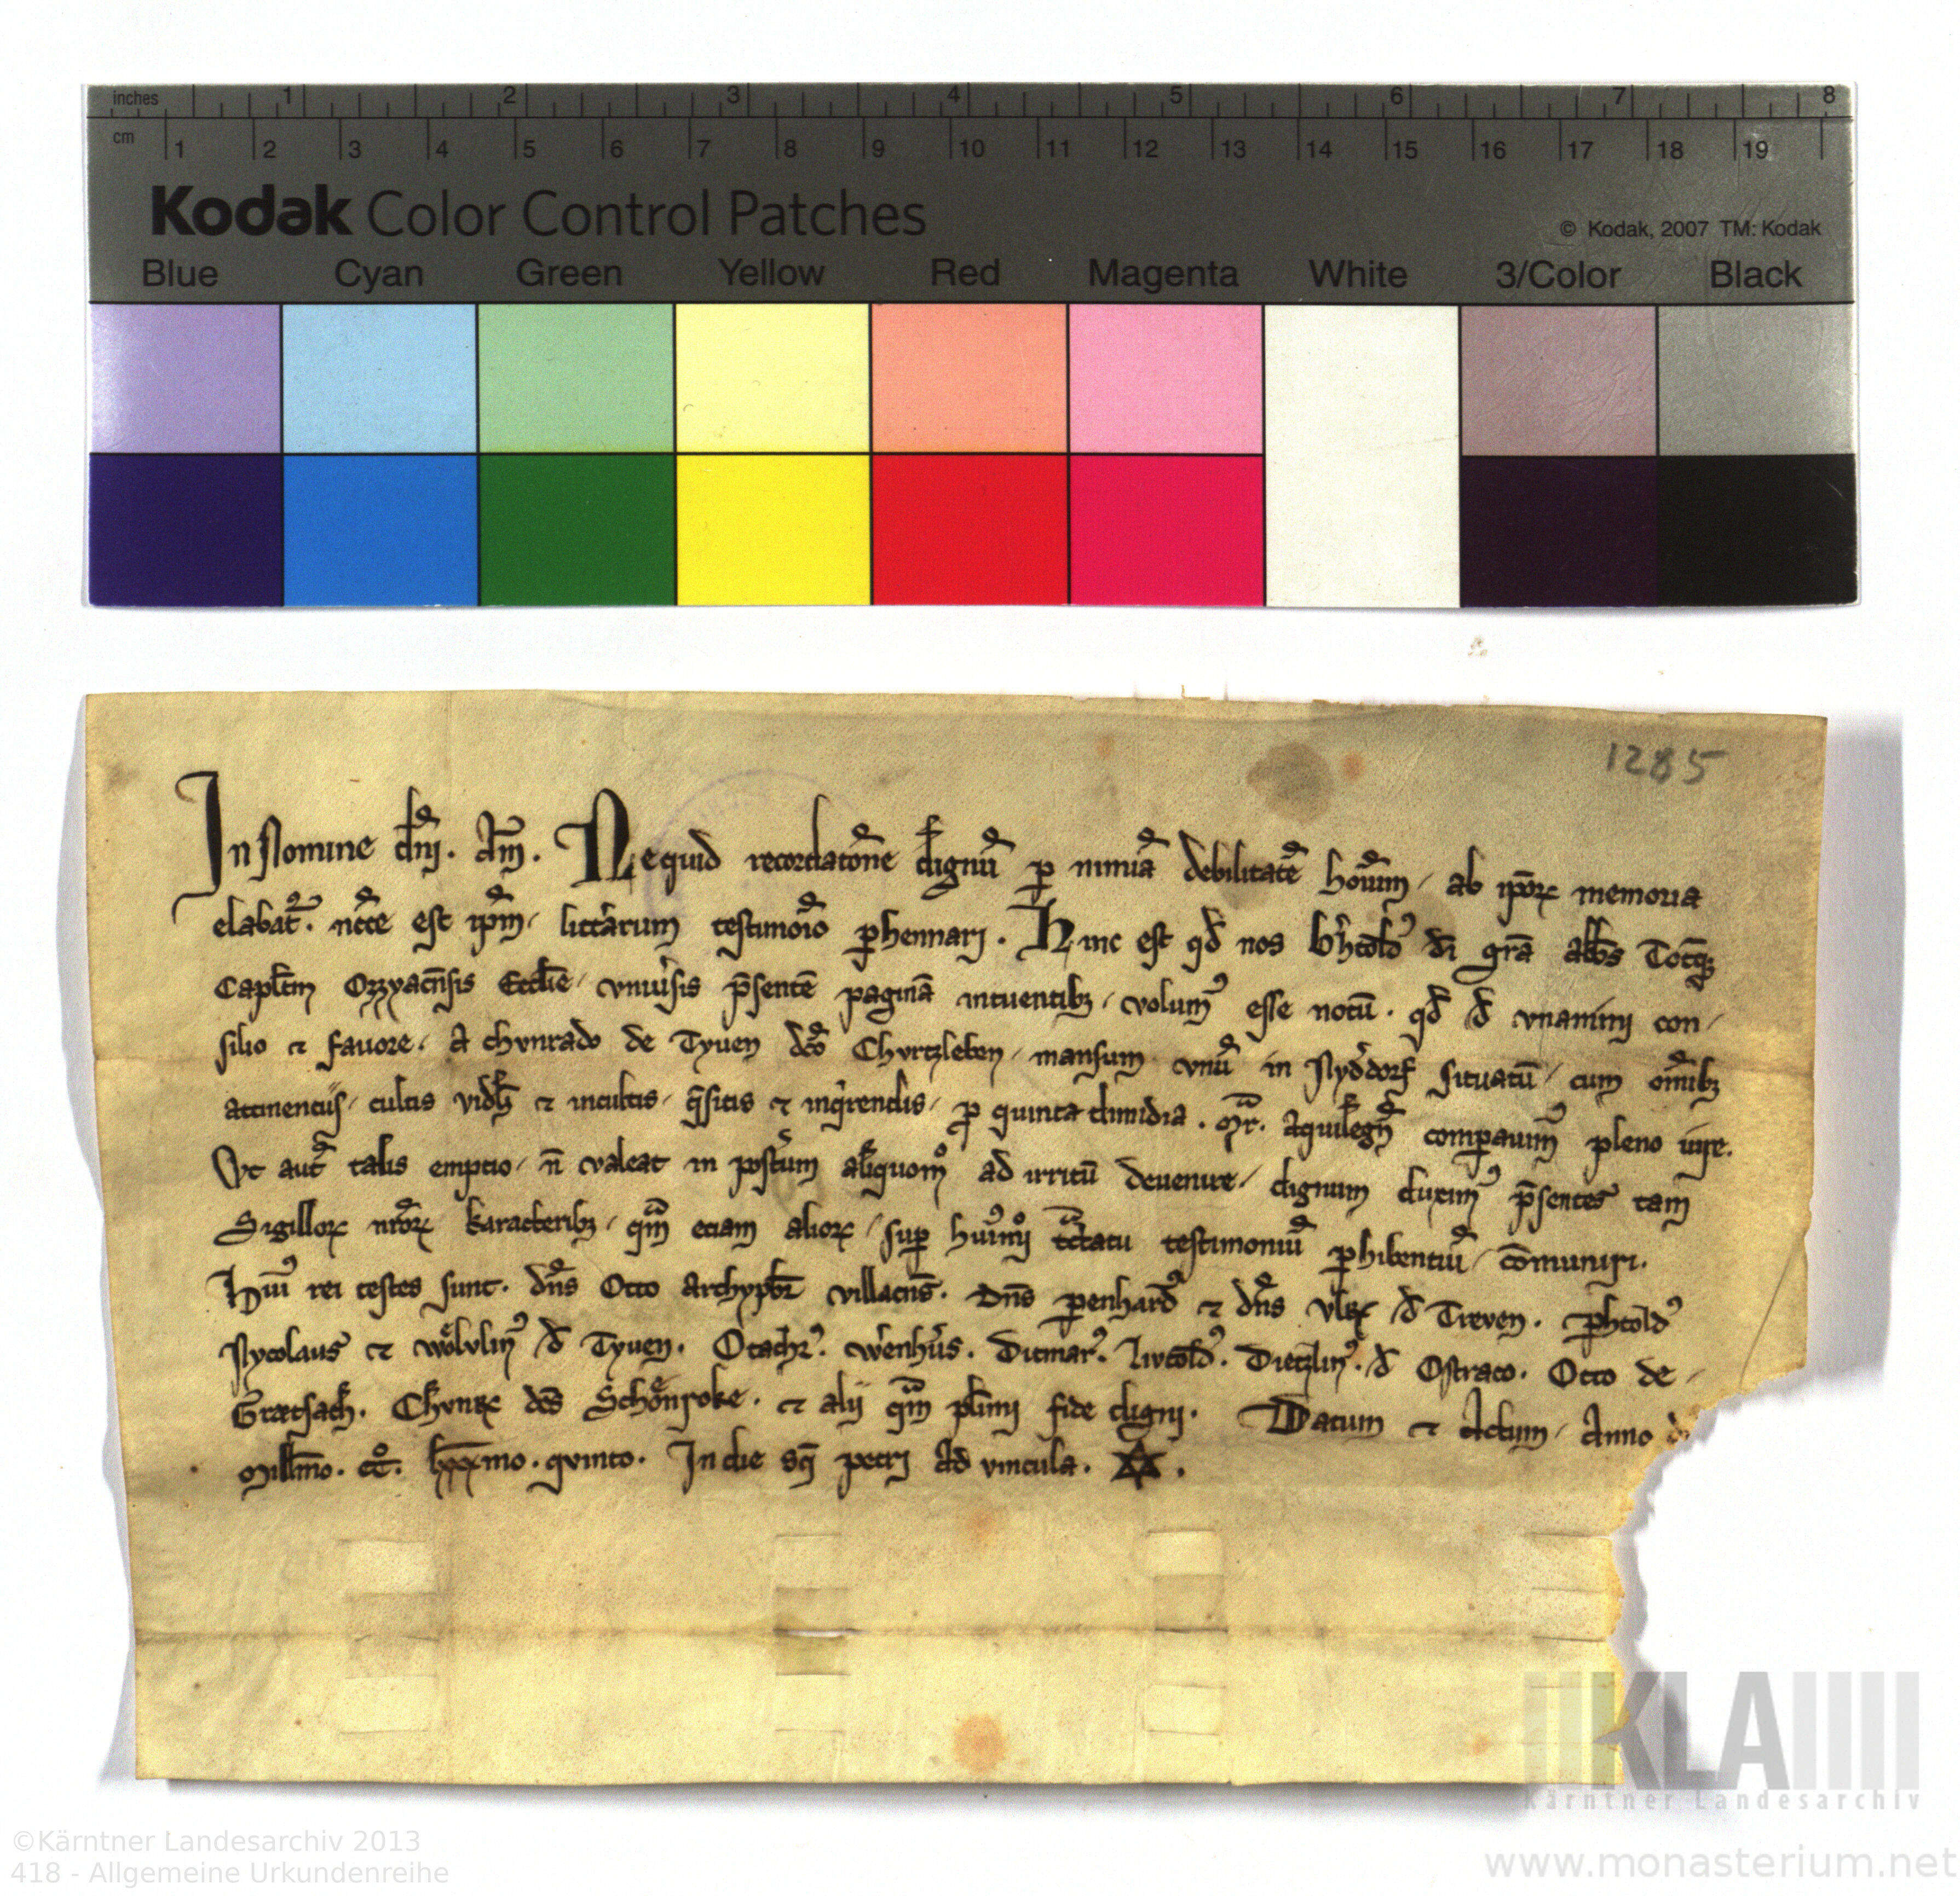 inches 1 2 3 4 5 6 7 8
cm 1 2 3 4 5 6 7 8 9 10 11 12 13 14 15 16 17 18 19
Kodak Color Control Patches
© Kodak, 2007 TM: Kodak
Blue Cyan Green Yellow Red Magenta White 3/Color Black
1285
In Nomine dn̄j. Am̄. Nequid recordatōne dignū ꝑ nimiā debilitatē hoīum / ab ip̄oꝝ memoria
elabat᷑. nc̄ce est ip̄m / litt̄arum testimoīo ꝑhennarj. Hinc est qd̓ nos B̓htold᷒ dī gr̄a abb̄s Totūqꝫ
Capl̄tm Ozzyacēn̄sis Eccl̄ie / vniu̓sis p̄sentē paginā intuentibꝫ / volum᷒ esse notū. qd̓ d̓ vnanimj con /
silio ⁊ fauore / A chvnrado de Tyuen dc̄o Chvrtzleben / mansum vnū in Nyd̓dorf situatū / cum om̄ibꝫ
attinentijs / cultis vidꝫ ⁊ incultis / q̄sitis ⁊ inq̓rendis / ꝑ quinta dimidia. Mr̄. Aquilegn̄ comparauim᷒ pleno iure.
Vt aut̄ talis emptio / n̄ valeat in post̓um aliquom̊ ad irritū deuenire / dignum duxim᷒ p̄sentes tam
Sigilloꝝ nr̄oꝝ karacteribꝫ / qm̄ eciam alioꝝ / suꝑ hui᷒mōj tc̄tatu testimoniū ꝑhibentiū / cōmunirj.
Hui᷒ rei testes sunt. dn̄s Otto archypb̄r villacn̄s. Dn̄s ꝑenhard᷒ ⁊ dn̄s Vlrꝝ d̓ Treven. ꝑhtold᷒
Nycolaus ⁊ wölvlin᷒ d̓ Tyuen. Otach̓r᷒. wērnh̓us. Ditmar᷒. Livtold᷒. Dietzlin᷒. d̓ Ostraco. Otto de /
Grætsach. Chvnrꝝ dc̄s Schönroke. ⁊ alij qm̄ pl̄imj fide dignj. Datum ⁊ Actum / Anno d
Mill̄mo. cc̊. lxxxmo. qvinto. In die sc̄j petrj Ad vincula.
KLA
Kärntner Landesarchiv
©Kärntner Landesarchiv 2013
418 - Allgemeine Urkundenreihe
www.monasterium.net